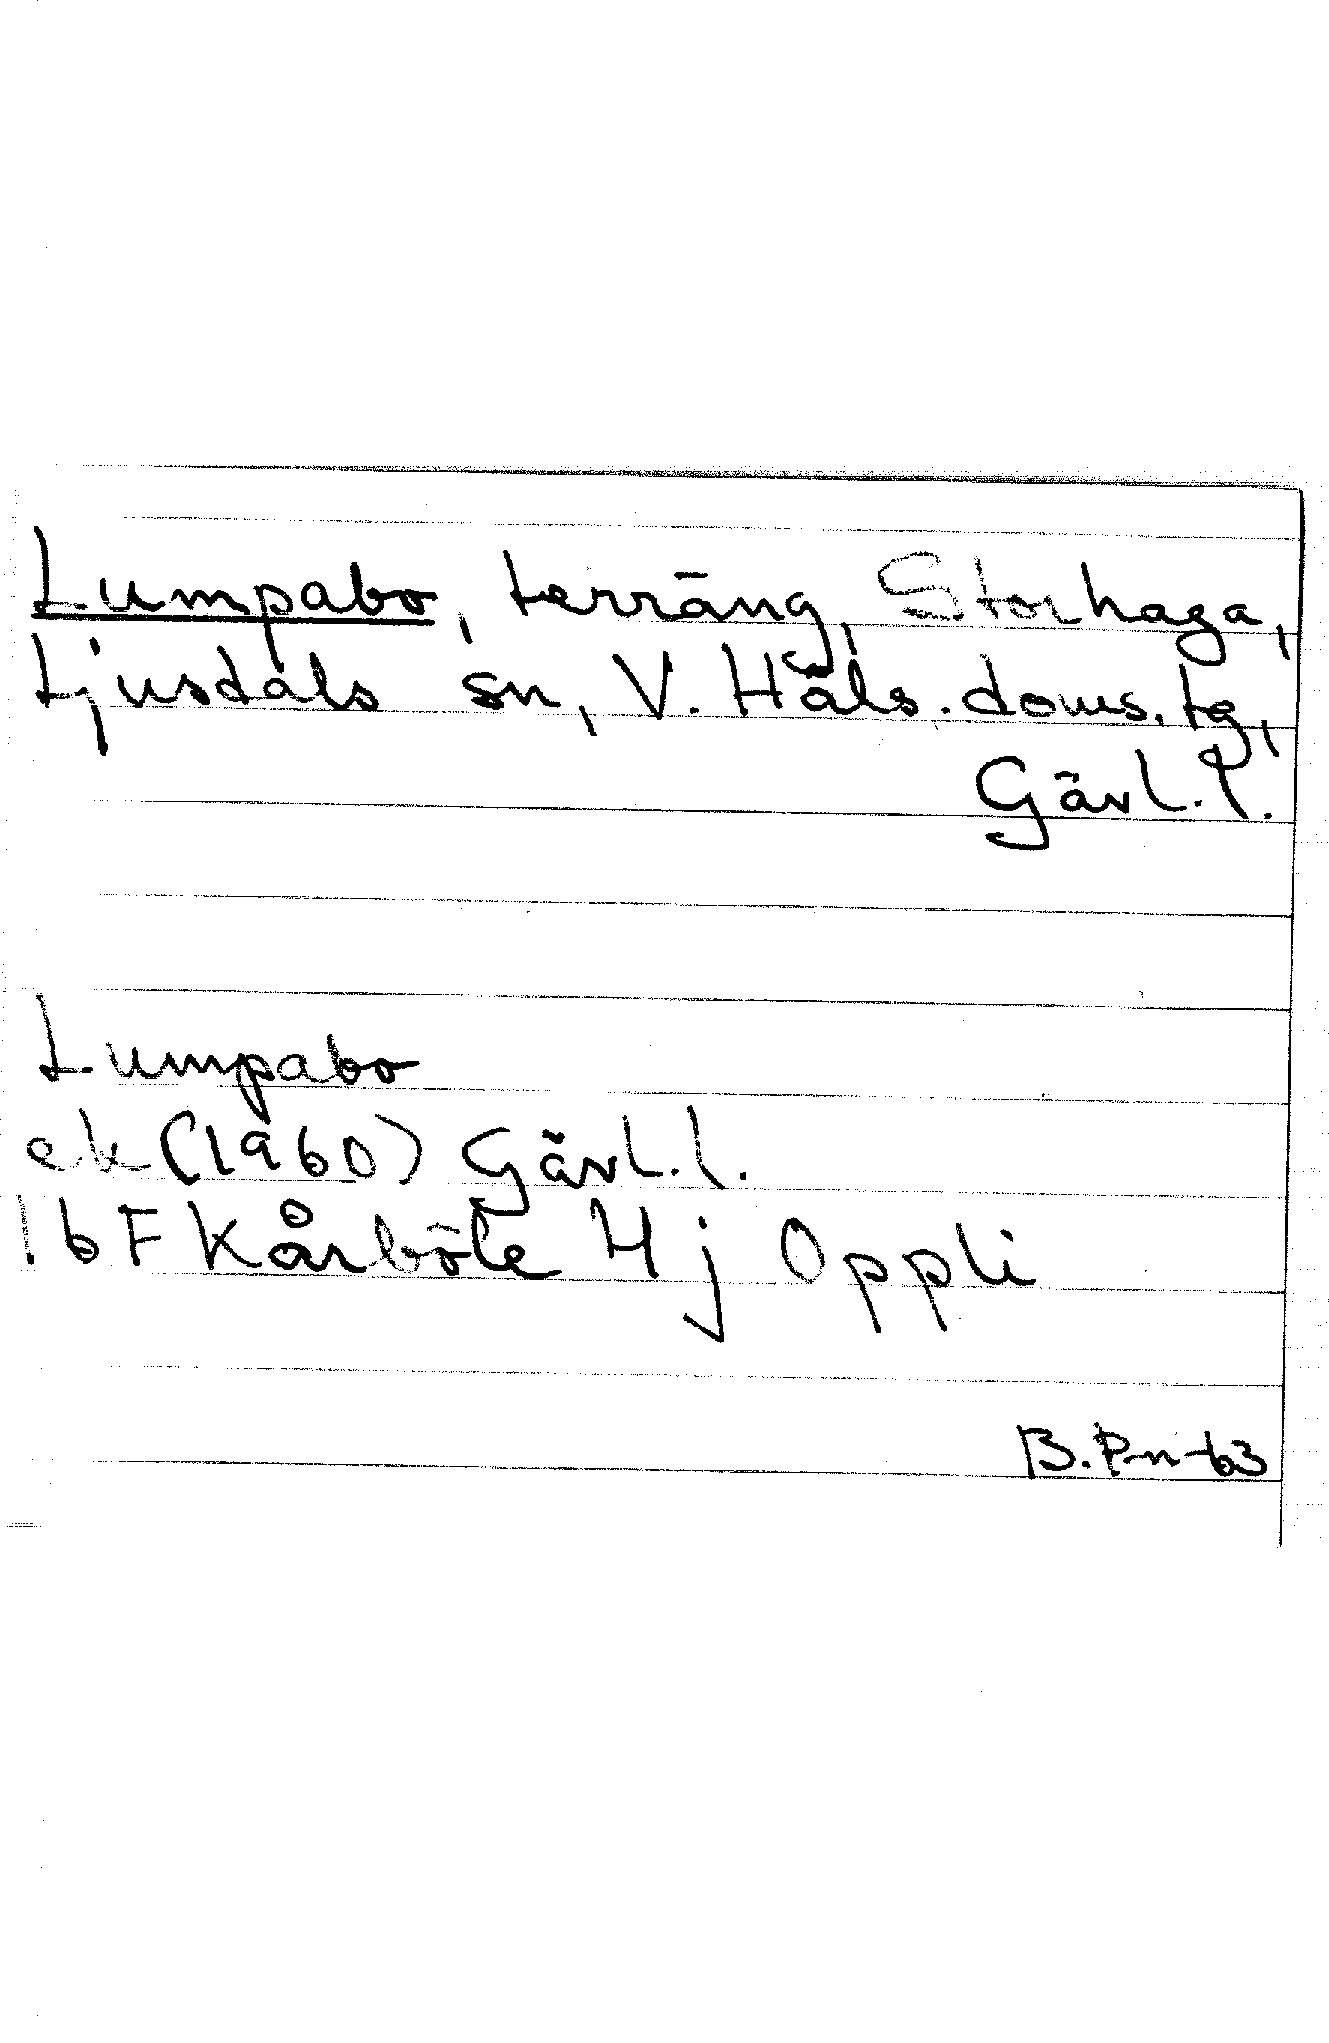 Lumpabo, terräng, Storhaga,
Ljusdals sn, V. Häls. doms. tg,
Gävl. l.
Lumpabo
ek (1960) Gävl. l.
16 F Kårböle 4 j Oppli
B. Pn-63